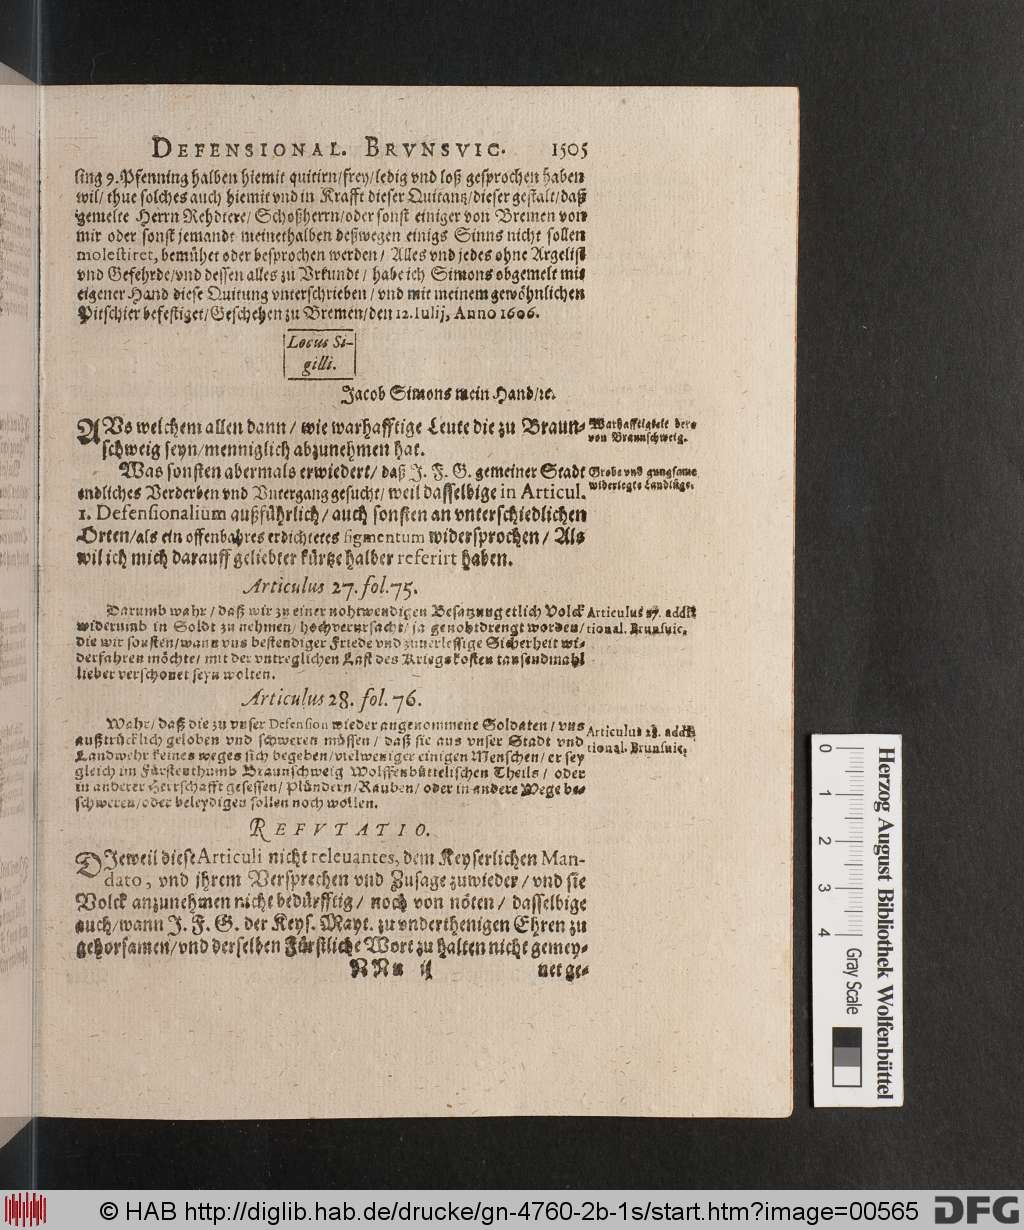 DEFENSIONAL. BRVNSVIC. 1505
ling 9. Pfenning halben hiemit quitirn/frey/ledig vnd loß gesprochen haben
wil/ thue solches auch hiemit vnd in Krafft dieser Quitantz/dieser gestalt/daß
gemelte Herrn Rehdtere/ Schoßherrn/oder sonst einiger von Bremen von
mir oder sonst jemandt meinethalben deßwegen einigs Sinns nicht sollen
molestiret, bemühet oder besprochen werden/ Alles vnd jedes ohne Argelist
vnd Gefehrde/vnd dessen alles zu Vrkundt/ habe ich Simons obgemelt mit
eigener Hand diese Quitung vnterschrieben/vnd mit meinem gewöhnlichen
Pitschier befestiget/Geschehen zu Bremen/den 12. Iulij, Anno 1606.
Locus Si-
gilli.
Jacob Simons mein Hand/ꝛc.
AVs welchem allen dann/ wie warhafftige Leute die zu Braun- Warhafftigkeit derer
schweig seyn/menniglich abzunehmen hat. von Braunschweig.
Was sonsten abermals erwiedert/ daß J. F. G. gemeiner Stadt Grobe vnd gnugsame
endliches Verderben vnd Vntergang gesucht/ weil dasselbige in Articul. widerlegte Landlüge.
1. Defensionalium außführlich/ auch sonsten an vnterschiedlichen
Orten/als ein offenbahres erdichtetes figmentum widersprochen/ Als
wil ich mich darauff geliebter kürtze halber referirt haben.
Articulus 27. fol. 75.
Darumb wahr/ daß wir zu einer nohtwendigen Besatzung etlich Volck Articulus 27. addit
widerumb in Soldt zu nehmen/ hochverursacht/ ja genohtdrengt worden/ tional. Brunsuic.
die wir sonsten/wann vns bestendiger Friede vnd zuverlessige Sicherheit wi-
derfahren möchte/ mit der vntreglichen Last des Kriegskosten tausendmahl
lieber verschonet seyn wolten.
Articulus 28. fol. 76.
Wahr/ daß die zu vnser Defension wieder angenommene Soldaten/ vns Articulus 28. addit
außtrücklich geloben vnd schweren müssen/ daß sie aus vnser Stadt vnd tional. Brunsuic.
Landwehr keines weges sich begeben/vielweniger einigen Menschen/ er sey
gleich im Fürstenthumb Braunschweig Wolffenbüttelischen Theils/ oder
in anderer Herrschafft gesessen/ Plündern/Rauben/ oder in andere Wege be-
schweren/oder beleydigen sollen noch wollen.
REFVTATIO.
DJeweil diese Articuli nicht releuantes, dem Keyserlichen Man-
dato, vnd jhrem Versprechen vnd Zusage zuwieder/ vnd sie
Volck anzunehmen nicht bedürfftig/ noch von nöten/ dasselbige
auch/wann J. F. G. der Keys. Mayt. zu vnderthenigen Ehren zu
gehorsamen/vnd derselben Fürstliche Wort zu halten nicht gemey-
NNn ij net ge-
Herzog August Bibliothek Wolfenbüttel
0 1 2 3 4 Gray Scale
© HAB http://diglib.hab.de/drucke/gn-4760-2b-1s/start.htm?image=00565 DFG